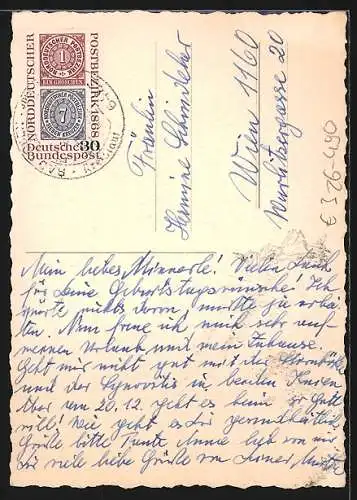 NORDDEUTSCHER POSTBEZIRK 1868
NORDDEUTSCHER POSTBEZIRK
1
EIN GROSCHEN
7
Deutsche
Bundespost 30
BAD
Fräulein
Hermine Schindler
Wien 1160
Wurlitzergasse 20
Mein liebes Minnerle! Vielen Dank
für Deine Geburtstagswünsche! Ich
spürte nichts davon, mußte ja arbei-
ten. Nun freue ich mich sehr auf
meinen Urlaub und mein Zuhause.
Geht mir nicht gut mit der Stirnhöhle
und der Synovitis in beiden Knien
Aber am 20.12. geht es heim so Gott
will! Wie geht es Dir gesundheitlich
Grüße bitte Tante Annie lieb von mir
Dir viele liebe Grüße von Deiner